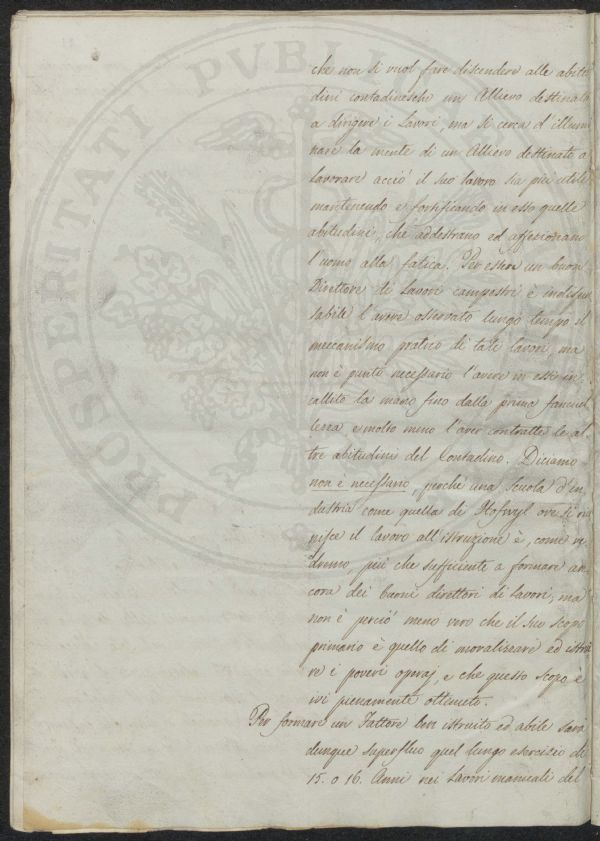 PROSPERITATI PUBLI
che non si vuol fare discendere alle abitu
dini contadinesche un Allievo destinato
a dirigere i Lavori, ma si cerca d'illumi
nare la mente di un Allievo destinato a
Lavorare acciò il suo lavoro sia più utile
mantenendo e fortificando in esso quelle
abitudini, che addestrano ed affezionano
l'uomo alla fatica. Per essere un buon
Direttore di Lavori campestri è indispen
sabile l'avere osservato lungo tempo il
meccanismo pratico di tali lavori, ma
non è punto necessario l'avere in essi in
callito la mano fino dalla prima fanciul
lezza e molto meno l'aver contratte le al
tre abitudini del Contadino. Diciamo
non è necessario, perchè una Scuola d'in
dustria come quella di Hofwyl ove si riu
nisce il lavoro all'istruzione è, come ve
dremo, più che sufficiente a formare an
cora dei buoni direttori di Lavori, ma
non è perciò meno vero che il suo scopo
primario è quello di moralizzare ed istrui
re i poveri operaj, e che questo scopo è
ivi pienamente ottenuto.
Per formare un Fattore ben istruito ed abile sarà
dunque superfluo quel lungo esercizio di
15. o 16. Anni nei Lavori manuali del